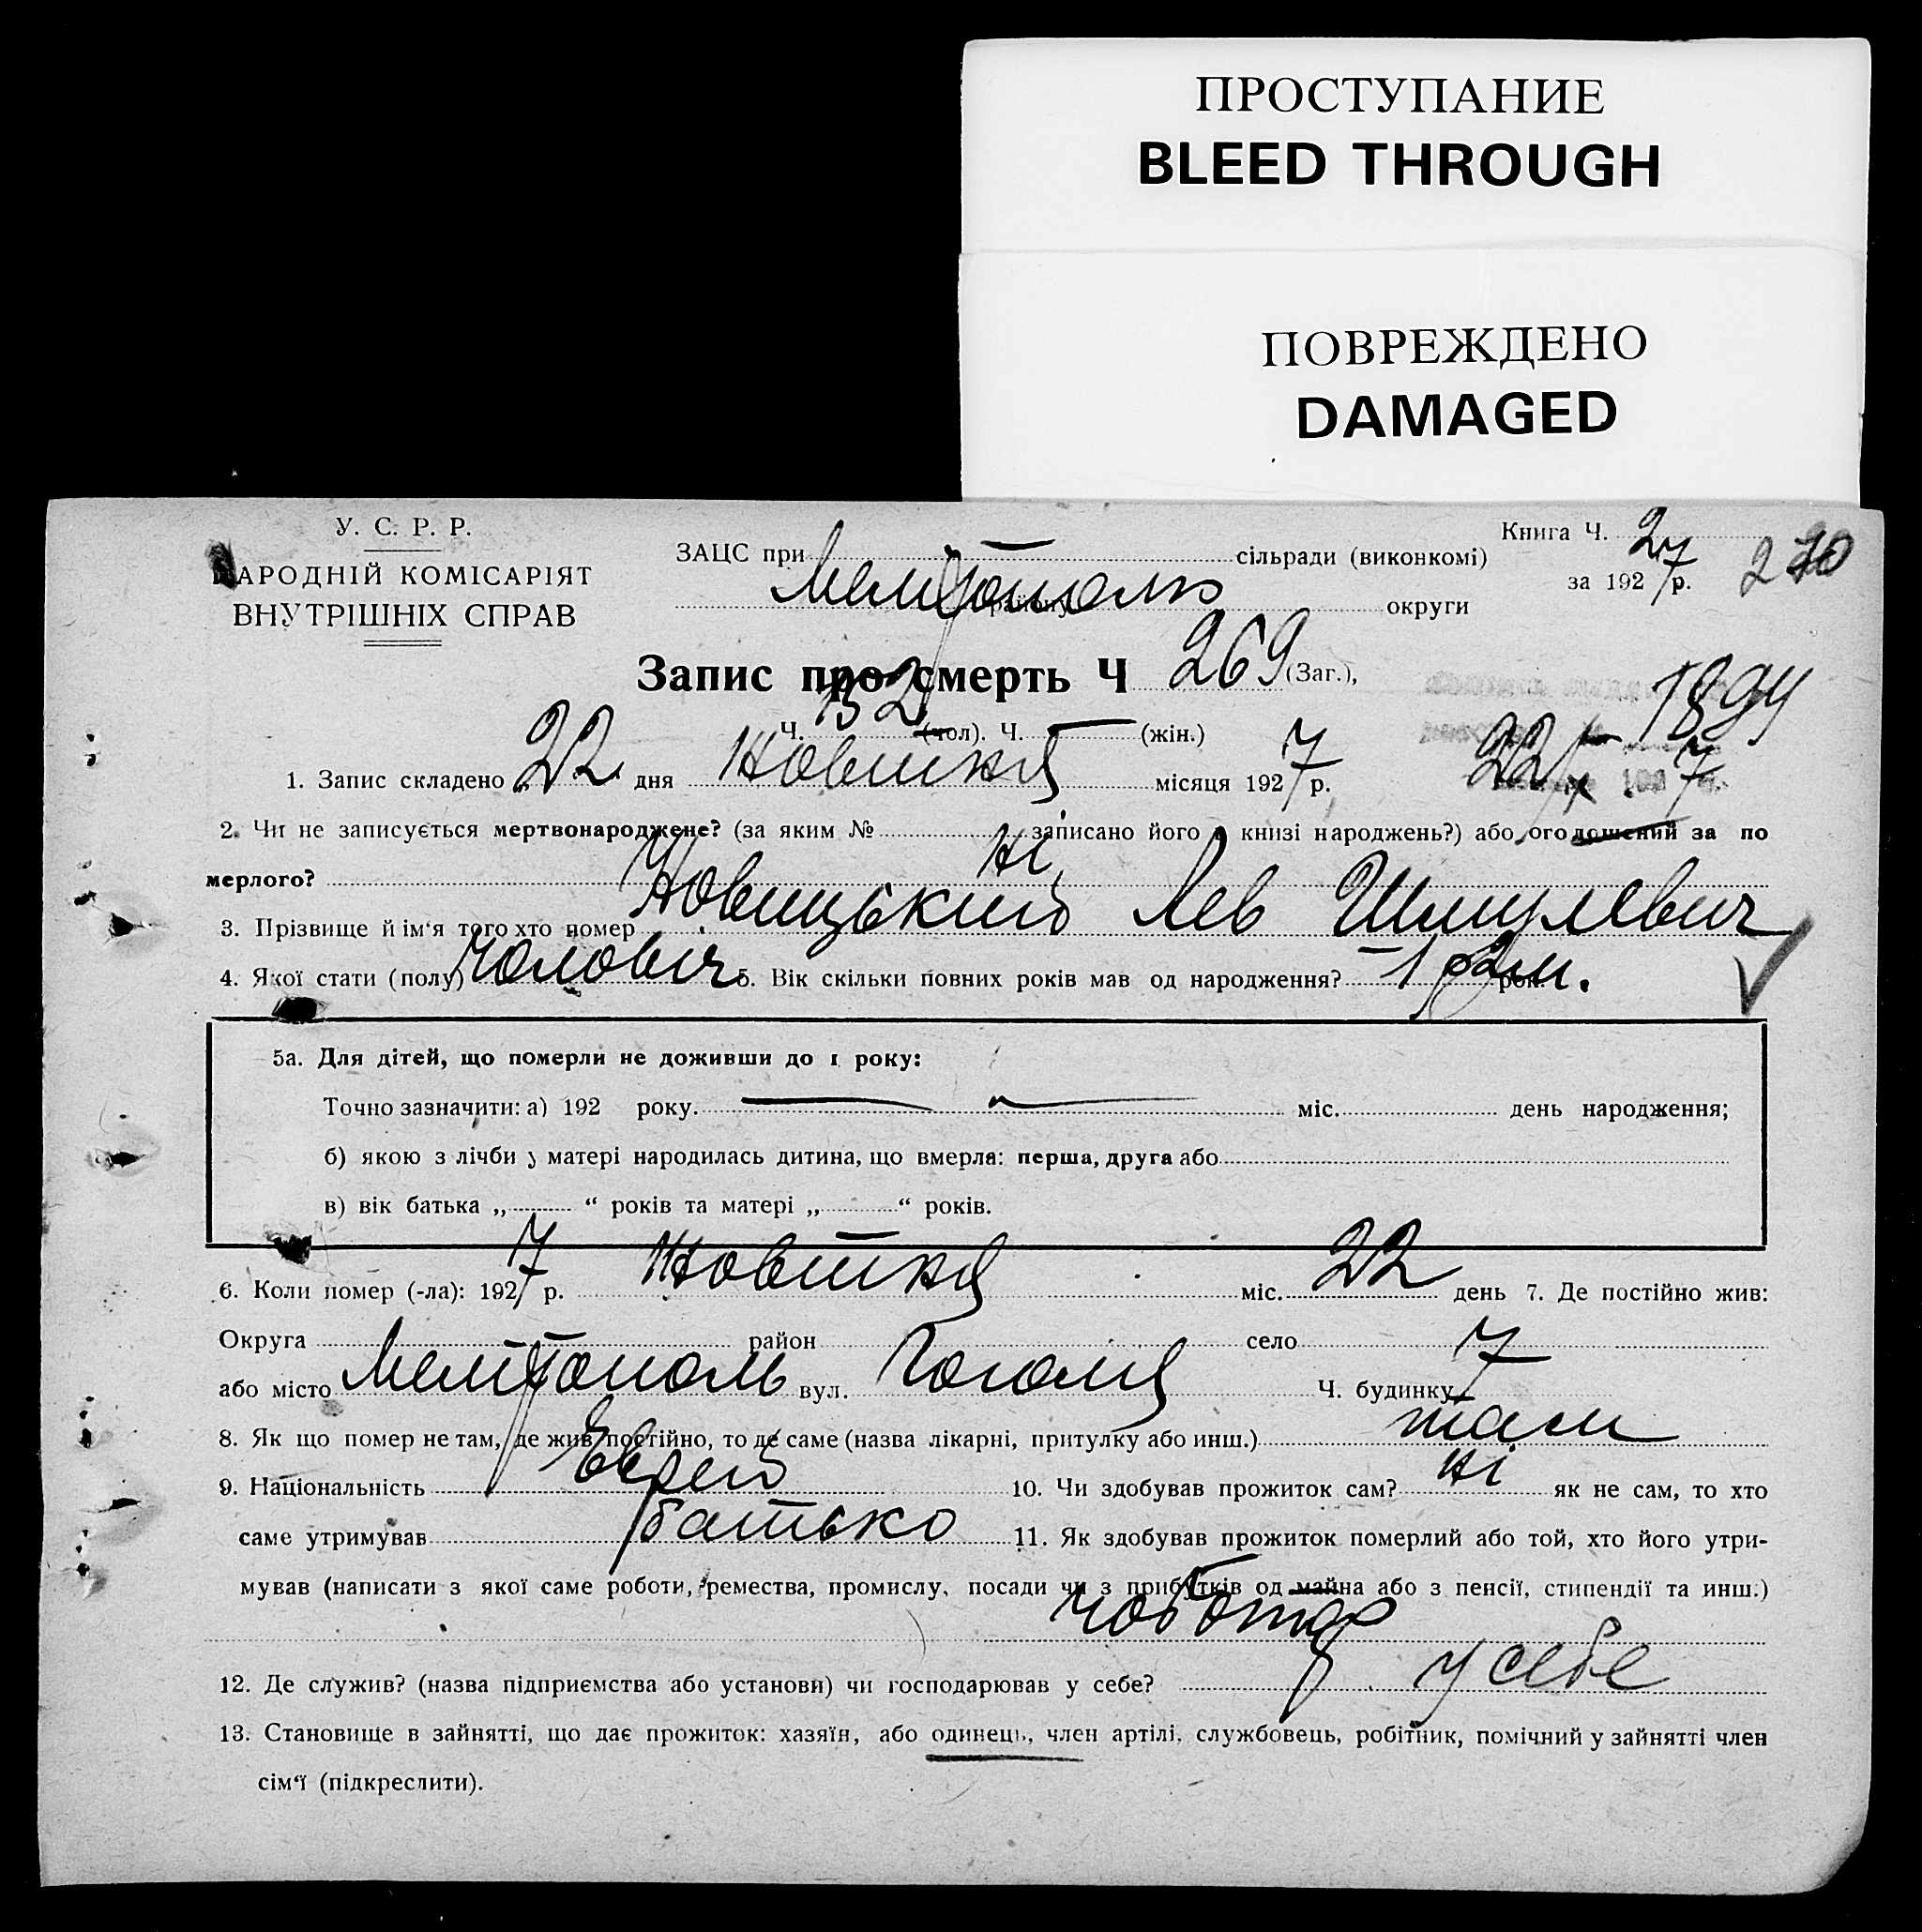 ПРОСТУПАНИЕ
BLEED THROUGH
ПОВРЕЖДЕНО
DAMAGED
У. С. Р. Р.
НАРОДНІЙ КОМІСАРІЯТ
ВНУТРІШНІХ СПРАВ
ЗАЦС при сільради (виконкомі)
Мелітополь району округи
Книга Ч. 2
за 1927 р.
270
Запис про смерть Ч 269 (Заг.),
Ч. 132 (чол). Ч. — (жін.)
1894
1. Запис складено 22 дня Жовтня місяця 1927 р.
22/X 7
2. Чи не записується мертвонароджене? (за яким № записано його в книзі народжень?) або оголошений за по
мерлого? Ні
3. Прізвище й ім'я того хто помер Новицький Лев Шмулевич
4. Якої статі (полу) Чоловіч. 5. Вік скільки повних років мав од народження? 1 р 2 м. рок.
5а. Для дітей, що померли не доживши до 1 року:
Точно зазначити: а) 192 року. міс. день народження;
б) якою з лічби у матері народилась дитина, що вмерла: перша, друга або
в) вік батька „ “ років та матері „ “ років.
6. Коли помер (-ла): 1927 р. Жовтня міс. 22 день 7. Де постійно жив:
Округа район село
або місто Мелітополь вул. Гоголя Ч. будинку 7
8. Як що помер не там, де жив постійно, то де саме (назва лікарні, притулку або инш.) там
9. Національність Еврей 10. Чи здобував прожиток сам? Ні як не сам, то хто
саме утримував батько 11. Як здобував прожиток померлий або той, хто його утри-
мував (написати з якої саме роботи, ремества, промислу, посади чи з прибутків од майна або з пенсії, стипендії та инш.)
чоботар
12. Де служив? (назва підприємства або установи) чи господарював у себе? у себе
13. Становище в зайнятті, що дає прожиток: хазяїн, або одинець, член артілі, службовець, робітник, помічний у зайнятті член
сім'ї (підкреслити).